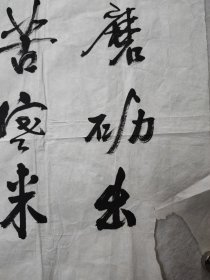 磨砺出
苦寒来